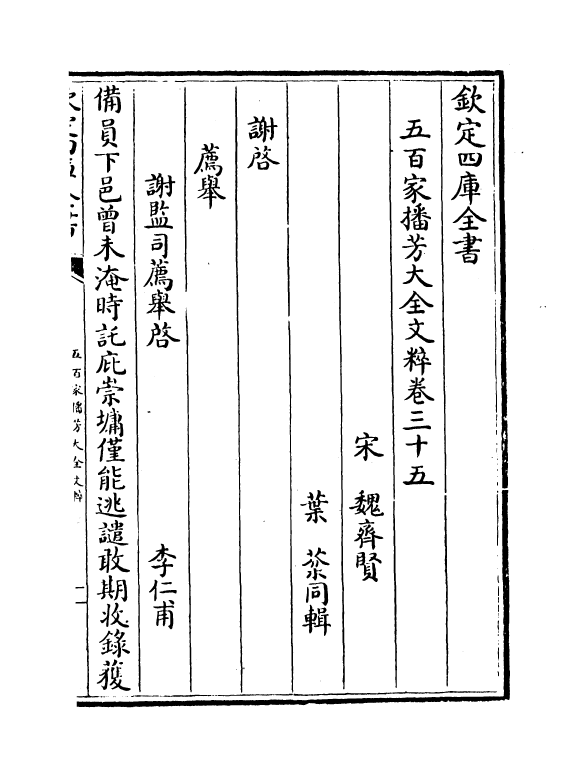 欽定四庫全書
五百家播芳大全文粹卷三十五
宋 魏齊賢
葉棻同輯
謝啓
薦舉
謝監司薦舉啓 李仁甫
備員下邑曾未淹時託庇崇墉僅能逃譴敢期收錄獲
五百家播芳大全文粹 一